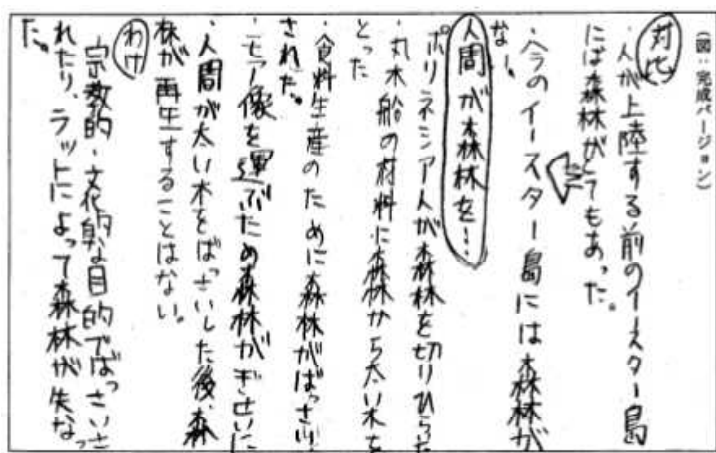 (図:完成バージョン)
対比
・人が上陸する前のイースター島
には森林がとてもあった。
・今のイースター島には森林が
ない。
人間が森林を!
ポリネシア人が森林を切りひらいた
・丸木船の材料に森林から太い木を
とった
・食料生産のために森林がばっさい
された。
・モアイ像を運ぶため森林がぎせいに
・人間が太い木をばっさいした後、森
林が再生することはない。
わけ
宗教的・文化的な目的でばっさいさ
れたり、ラットによって森林が失なっ
た。